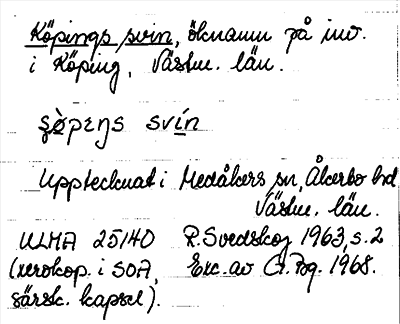 Köpings svin, öknamn på inv.
i Köping, Västm. län.
svin
Upptecknat i Medåkers sn, Åkerbo hd
Västm. län.
ULMA 25140 R. Svedskog 1963, s. 2
(xerokop. i SOA, Exc. av
särsk. kapsel). 1968.